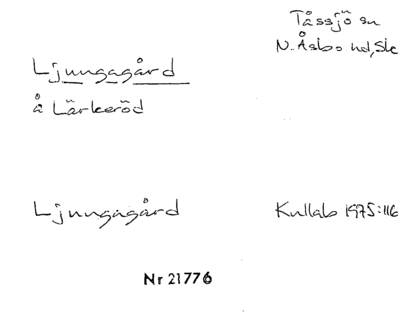 Tåssjö sn
N. Åsbo hd, Sk
Ljungagård
å Lärkeröd
Ljungagård
Kullab 1975:116
Nr 21776